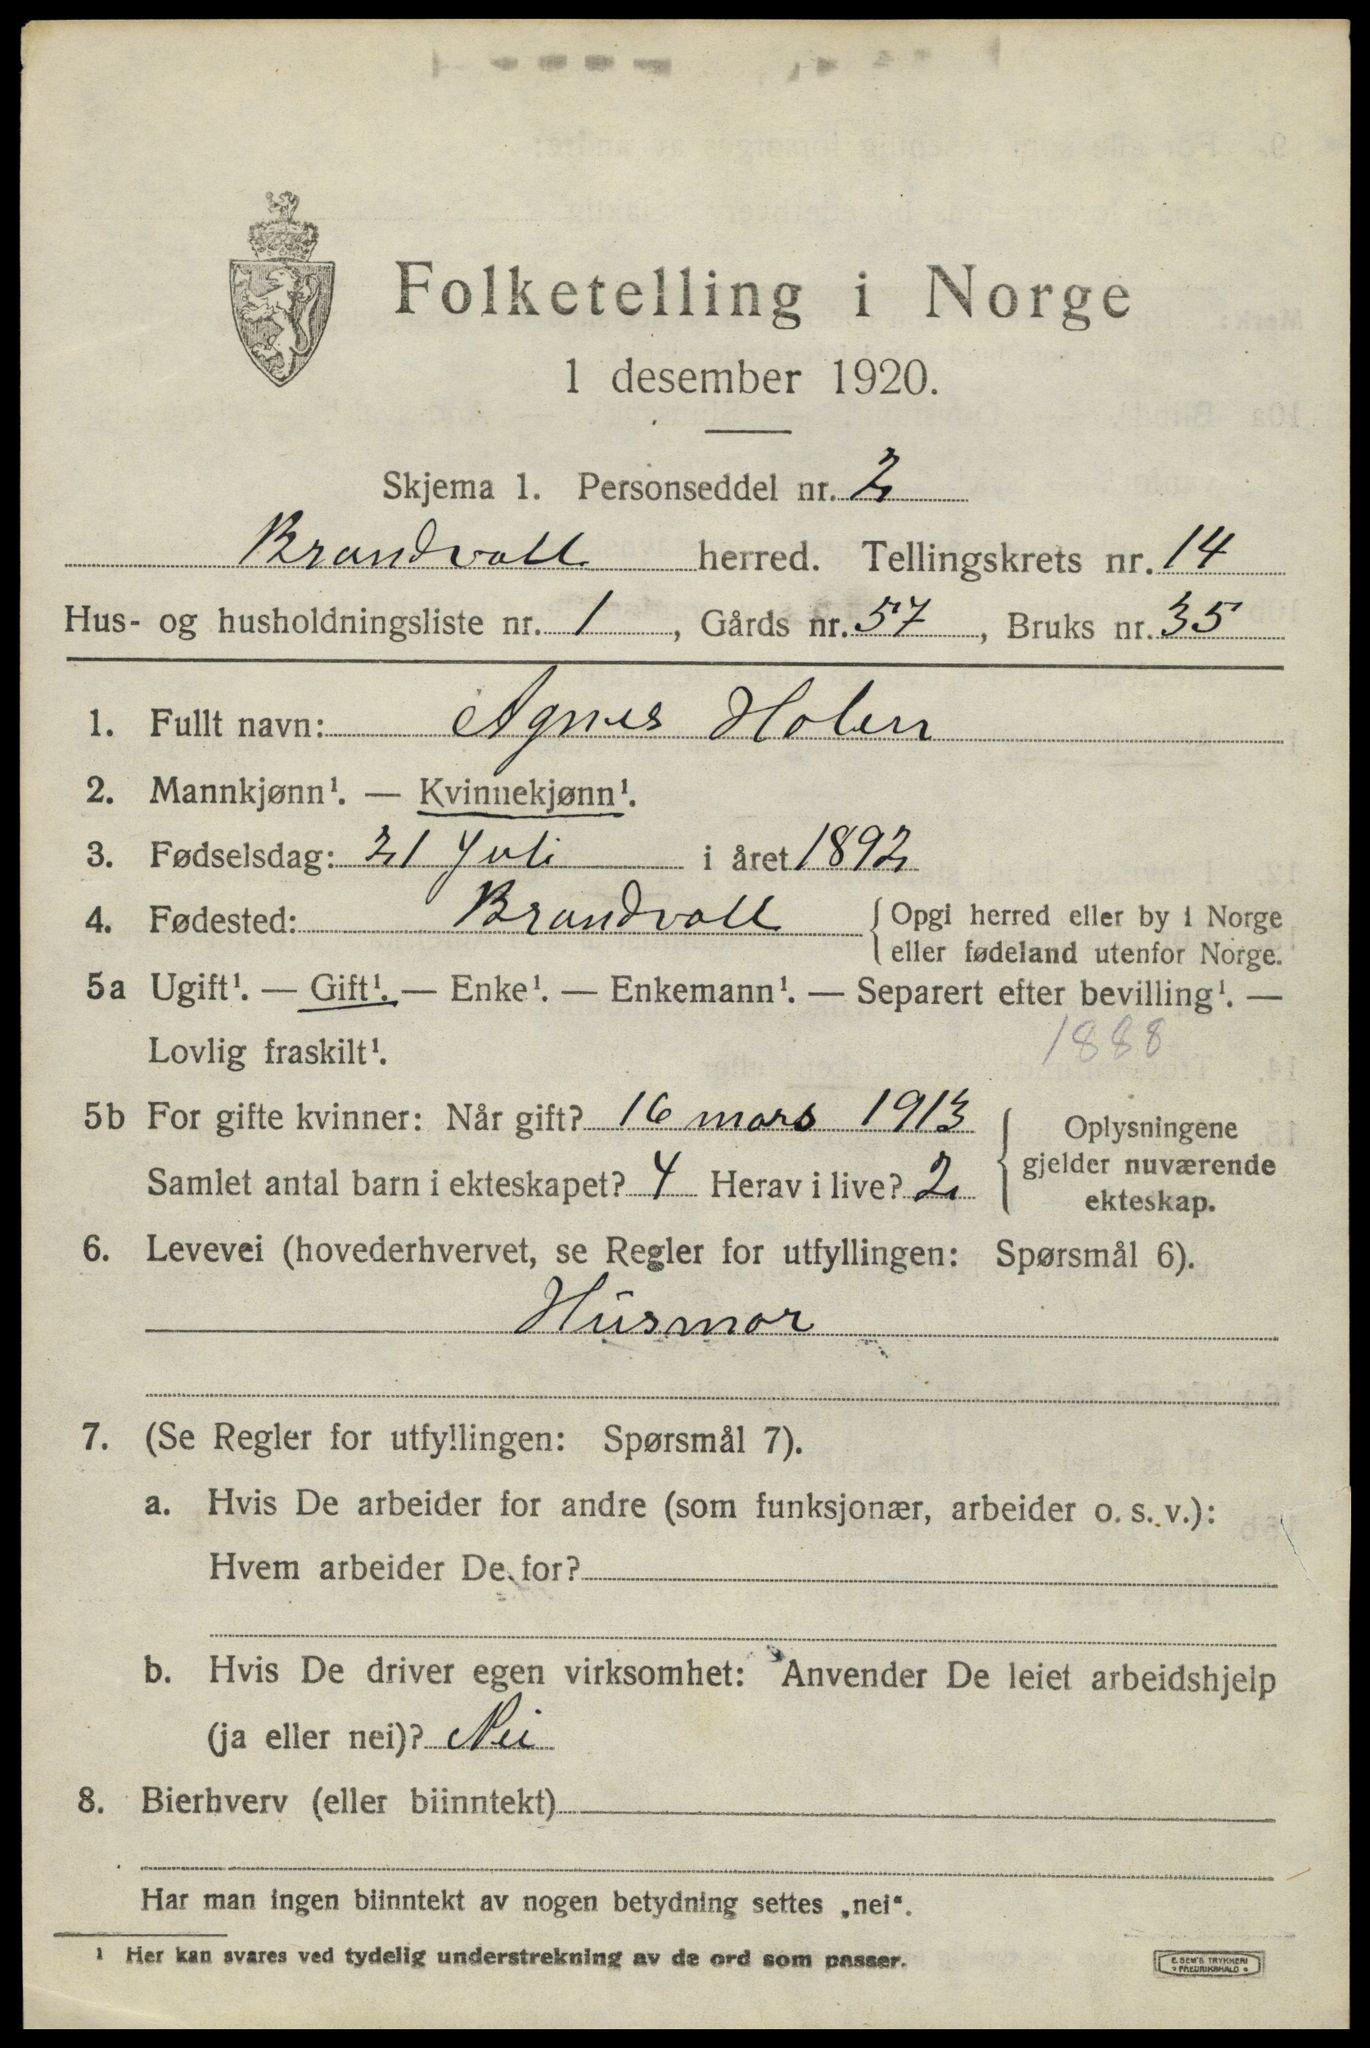 Folketelling i Norge
1 desember 1920.
Skjema 1. Personseddel nr. 2
Brandvoll herred. Tellingskrets nr. 14
Hus- og husholdningsliste nr. 1, Gårds nr. 57, Bruks nr. 35
1. Fullt navn: Agnes Holen
2. Mannkjønn¹. — Kvinnekjønn¹.
3. Fødselsdag: 21 Juli i året 1892
4. Fødested: Brandvoll { Opgi herred eller by i Norge
eller fødeland utenfor Norge.
5a Ugift¹. — Gift¹. — Enke¹. — Enkemann¹. — Separert efter bevilling¹. —
Lovlig fraskilt¹. 1888
5b For gifte kvinner: Når gift? 16 mars 1913
Samlet antal barn i ekteskapet? 4 Herav i live? 2
{ Oplysningene
gjelder nuværende
ekteskap.
6. Levevei (hovederhvervet, se Regler for utfyllingen: Spørsmål 6).
Husmor
7. (Se Regler for utfyllingen: Spørsmål 7).
a. Hvis De arbeider for andre (som funksjonær, arbeider o. s. v.):
Hvem arbeider De for?
b. Hvis De driver egen virksomhet: Anvender De leiet arbeidshjelp
(ja eller nei)? Nei
8. Bierhverv (eller biinntekt)
Har man ingen biinntekt av nogen betydning settes „nei“.
¹ Her kan svares ved tydelig understrekning av de ord som passer.
E. SEM'S TRYKKERI
FREDRIKSHALD